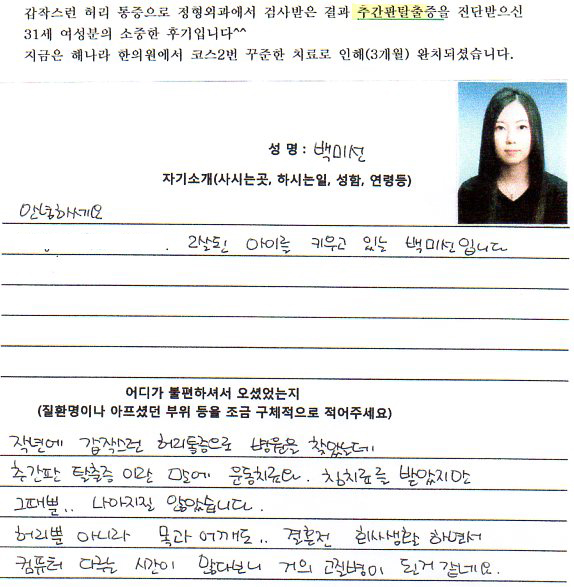 갑작스런 허리 통증으로 정형외과에서 검사받은 결과 추간판탈출증을 진단받으신
31세 여성분의 소중한 후기입니다^^
지금은 해나라 한의원에서 코스2번 꾸준한 치료로 인해(3개월) 완치되셨습니다.
성 명 : 백미선
자기소개(사시는곳, 하시는일, 성함, 연령등)
안녕하세요
2살된 아이를 키우고 있는 백미선입니다
어디가 불편하셔서 오셨었는지
(질환명이나 아프셨던 부위 등을 조금 구체적으로 적어주세요)
작년에 갑작스런 허리통증으로 병원을 찾았는데
추간판 탈출증 이란 말에 운동치료와. 침치료를 받았지만
그때뿐.. 나아지질 않았습니다.
허리뿐 아니라 목과 어깨도.. 결혼전 회사생활 하면서
컴퓨터 다루는 시간이 많다보니 거의 고질병이 된거 같네요.